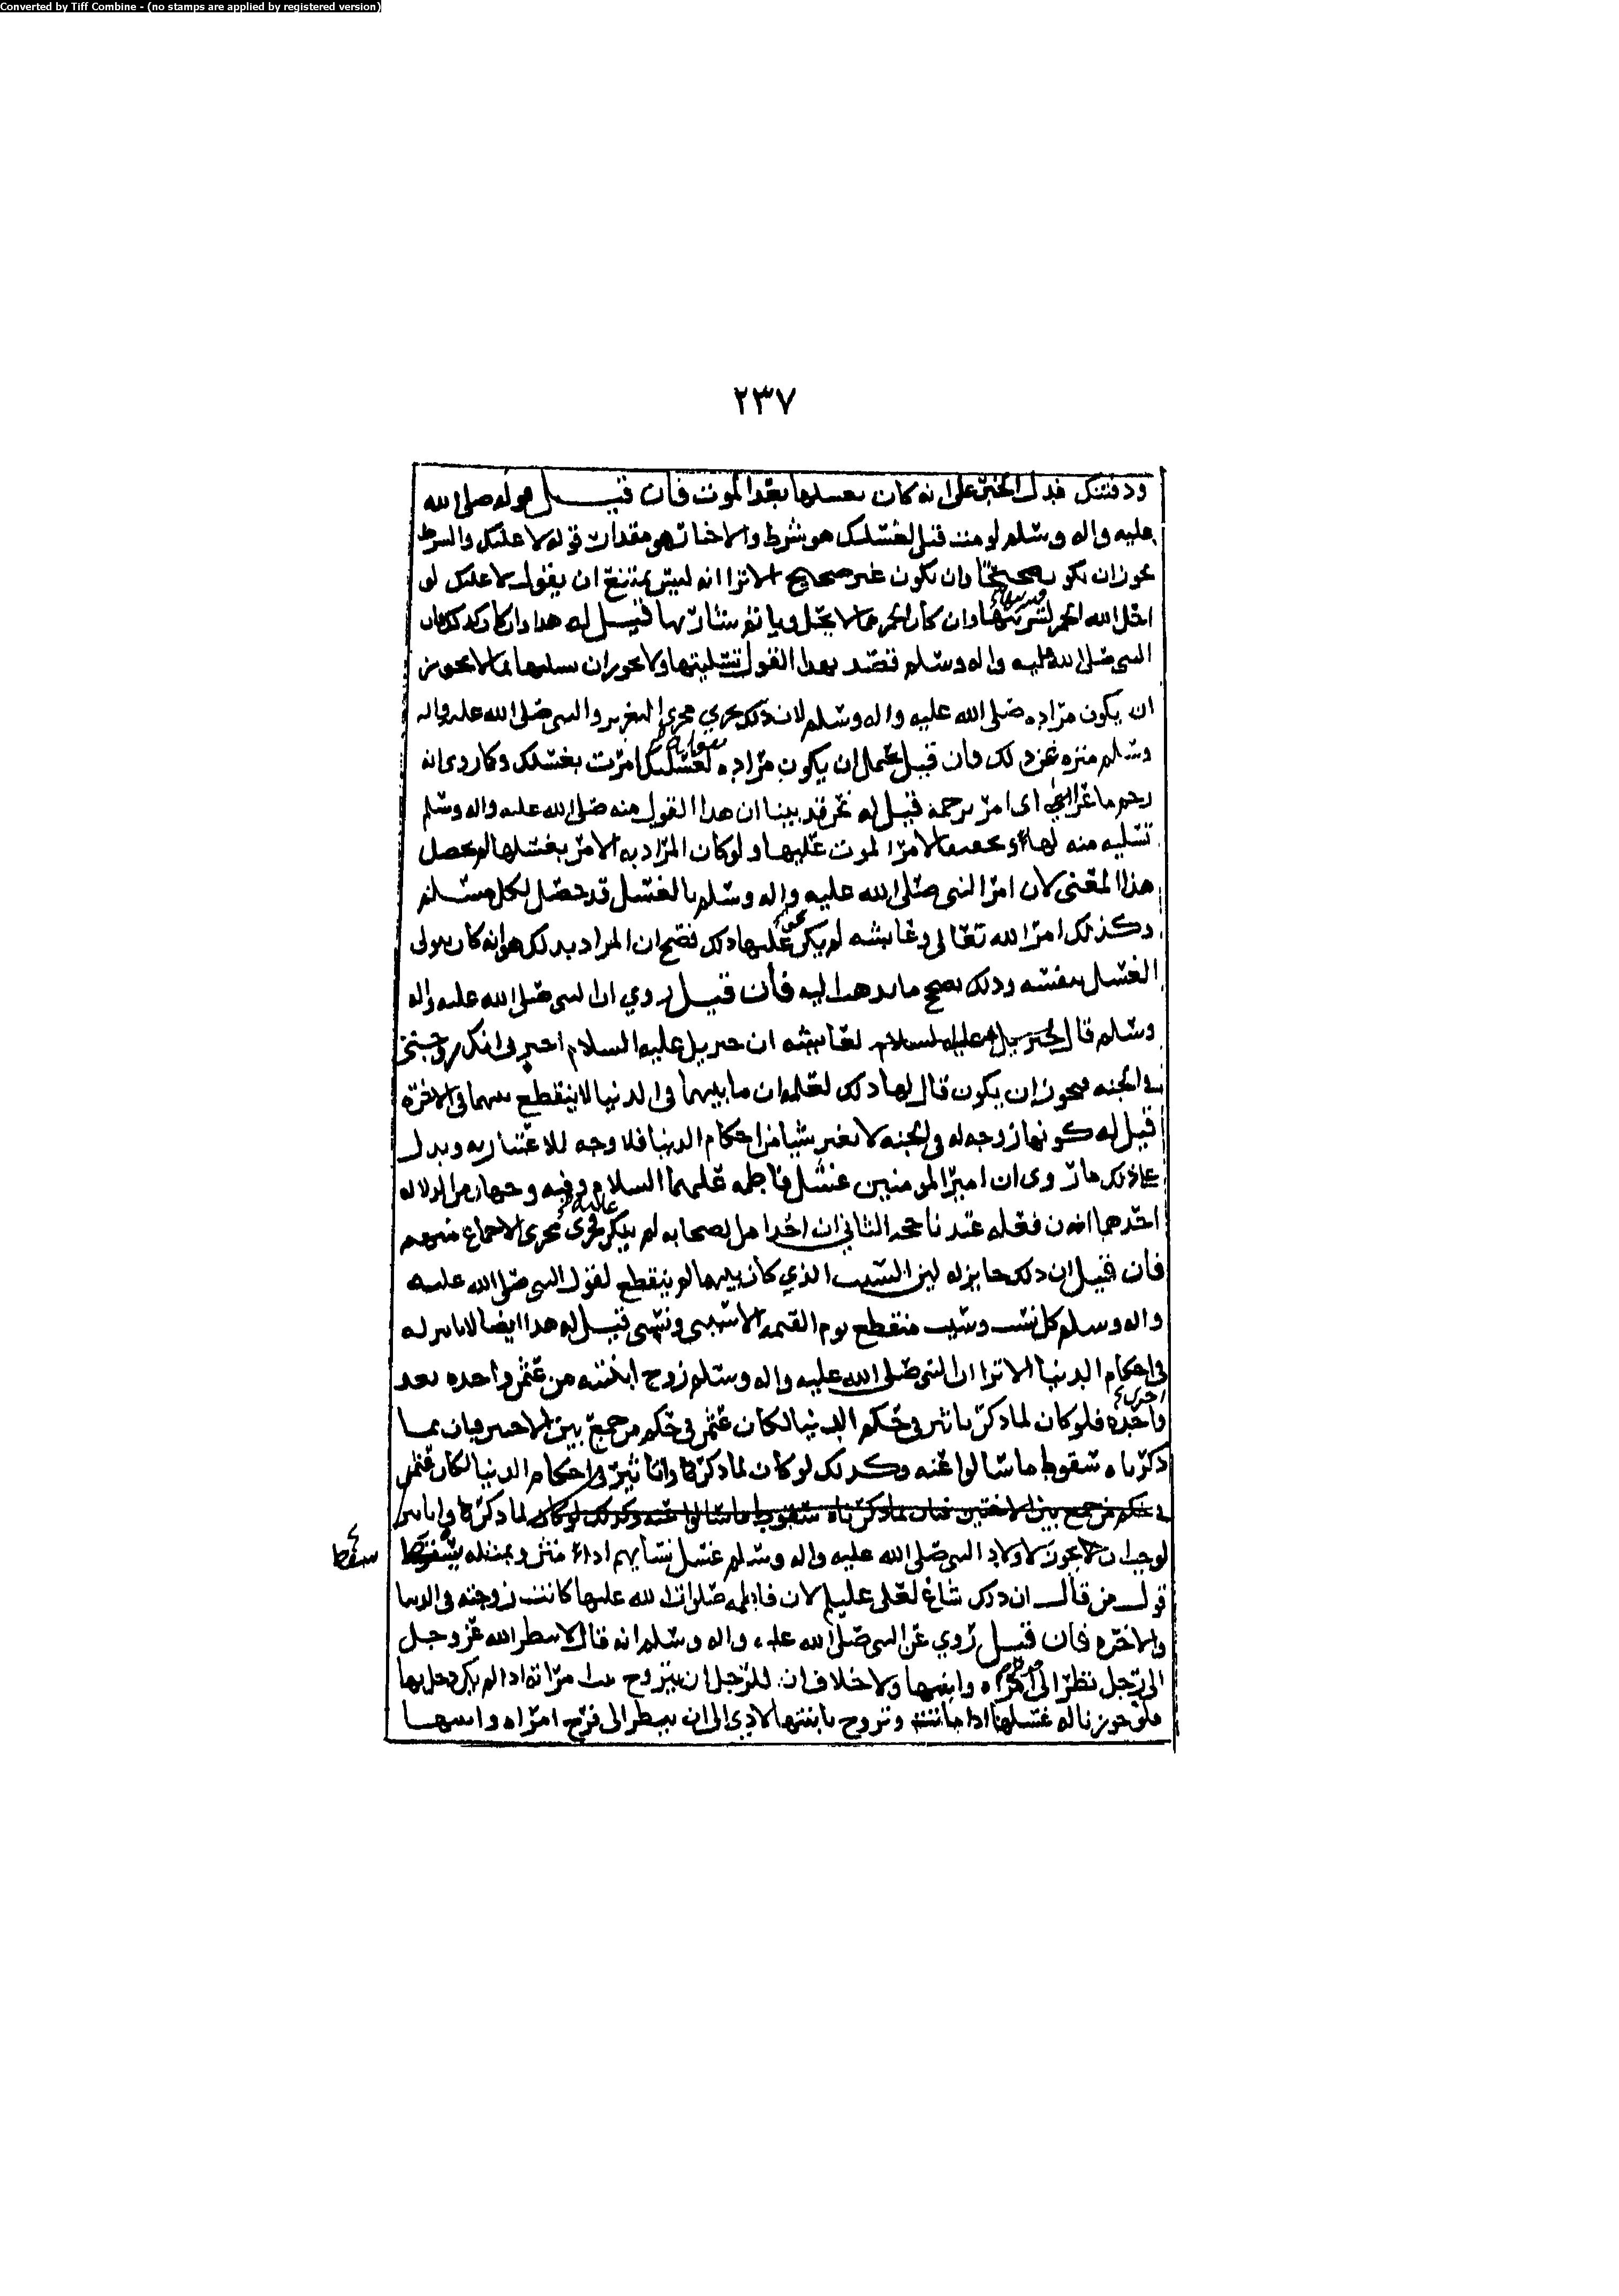 Converted by Tiff Combine - (no stamps are applied by registered version)
٢٣٧
ودفنتك فدل الخبر على انه كان يغسلها بعد الموت فان قيل قوله صلى الله
عليه واله وسلم لو مت قبلي لغسلتك هو شرط والاخبار هو مقدار قوله لا عليك والشرط
يجوز ان يكون صحيحا وان يكون غير صحيح الا ترا انه ليس يمتنع ان يقول لا عليك لو
احل الله الخمر لشربتها وان كان الخمر مما لا يحل ويأثم شاربها قيل له هذا وان كان كذلك فان
النبي صلى الله عليه واله وسلم قصد بهذا القول تسليتها ولا يجوز ان يسليها بما لا يجوز
ان يكون مراده صلى الله عليه واله وسلم لان ذلك يجري مجرى التغرير والنبي صلى الله عليه واله
وسلم منزه عن ذلك فان قيل يحتمل ان يكون مراده بقوله لغسلتك امرت بغسلك وكما روي انه
رجم ماعزا اي امر برجمه قيل له نحن قد بينا ان هذا القول منه صلى الله عليه واله وسلم
تسليه منه لها وتخفيفا لامر الموت عليها ولو كان المراد به الامر بغسلها لم يحصل
هذا المعنى لان امر النبي صلى الله عليه واله وسلم بالغسل قد حصل لكل مسلم
وكذلك امر الله تعالى وعائشه لم يكن عليها ذلك فصح ان المراد بذلك هو انه كان يتولى
الغسل بنفسه وذلك يصحح ما نذهب اليه فان قيل روي ان النبي صلى الله عليه واله
وسلم قال لعائشه ان جبريل عليه السلام اخبرني انك زوجتي
في الجنه فيجوز ان يكون قال لها ذلك لعلمه ان ما بينهما في الدنيا لا ينقطع بينهما في الاخره
قيل له كونها زوجه له في الجنه لا يغير شيا من احكام الدنيا فلا وجه للاعتبار به ويدل
على ذلك ما روي ان امير المومنين غسل فاطمه عليهما السلام وفيه وجهان من الدلاله
احدهما ان فعله عندنا حجه الثاني ان احدا من الصحابه لم ينكر عليه فجرى مجرى الاجماع منهم
فان قيل ان ذلك جايز له لان السبب الذي كان بينهما لم ينقطع لقول النبي صلى الله عليه
واله وسلم كل نسب وسبب منقطع يوم القيمه الا سببي ونسبي قيل له هذا ايضا لا تاثير له
في احكام الدنيا الا ترا ان النبي صلى الله عليه واله وسلم زوج ابنتيه من عثمن واحده بعد
واحده اخرى فلو كان لما ذكر تاثير في حكم الدنيا لكان عثمن في حكم من جمع بين الاختين وبان بما
ذكرناه سقوط ما سالوا عنه وكذلك لو كان لما ذكروا تاثير في احكام الدنيا لكان عثمن
في حكم من جمع بين الاختين فبان بما ذكرناه سقوط ما سالوا عنه وكذلك لو كان لما ذكروا تاثير
لوجب ان لا يجوز لاولاد النبي صلى الله عليه واله وسلم غسل نسايهم اذا متن وبمثله يسقط
سقط
قول من قال ان ذلك شاغ لعلي عليلم لان فاطمه صلوات الله عليها كانت زوجته في الدنيا
والاخره فان قيل روي عن النبي صلى الله عليه واله وسلم انه قال لا ينظر الله عز وجل
الى رجل نظر الى فرج امراه وابنتها ولا خلاف ان للرجل ان يتزوج بنت امراته اذا لم يكن دخل بها
فلو جوزنا له غسلها اذا ماتت وتزوج بابنتها لادى الى ان ينظر الى فرج امراه وابنتها